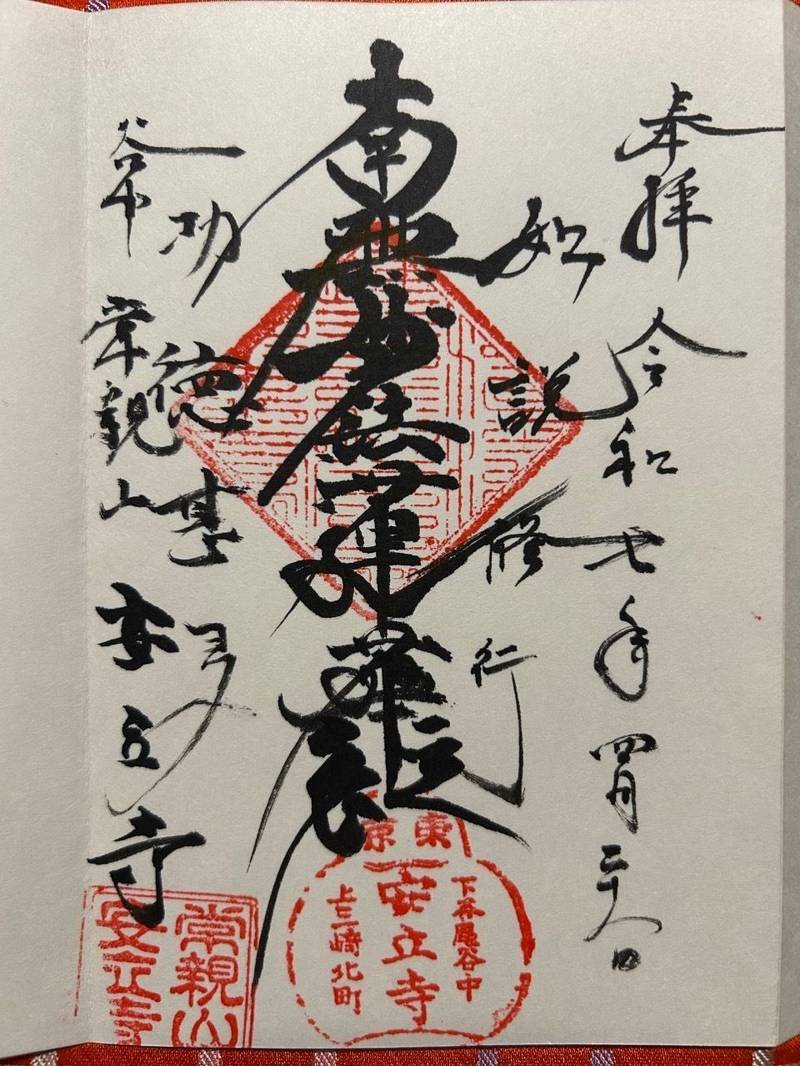 奉拝 令和七年四月二十八日
如説修行
南無妙法蓮華經
功徳甚多
谷中 常親山 安立寺
東京
下谷區谷中
安立寺
上三崎北町
常親山
安立寺